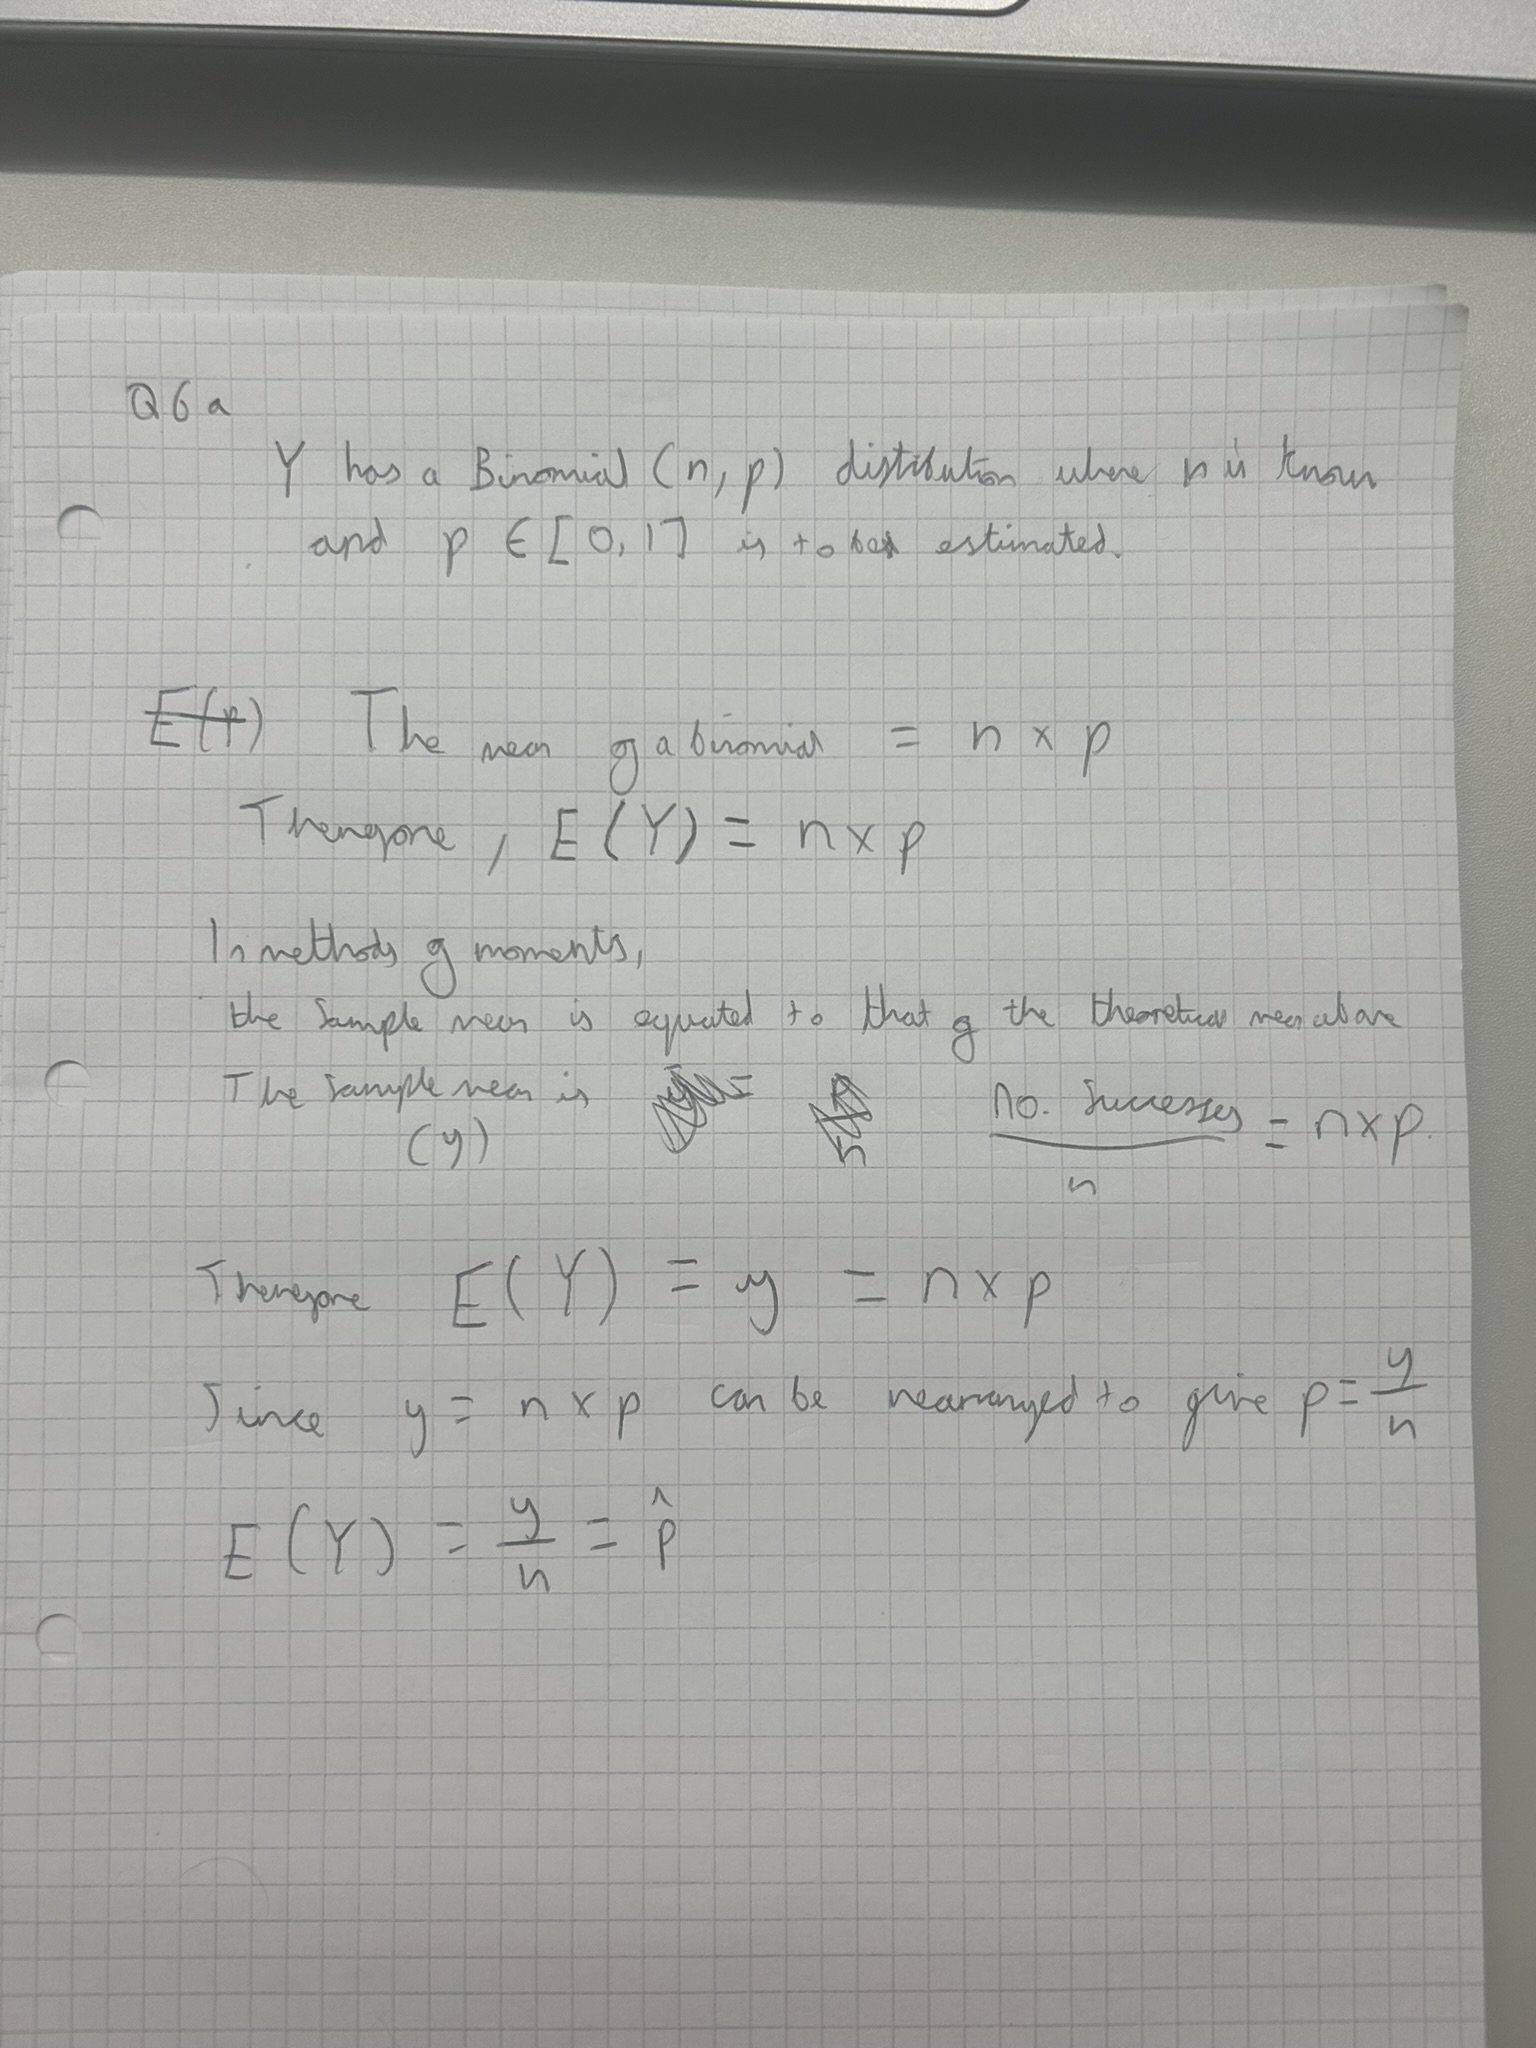 Q6a
Y has a Binomial (n, p) distribution where n is known
and p ∈ [0, 1] is to be estimated.
E(p) The mean of a binomial = n × p
Therefore, E(Y) = n × p
In methods of moments,
the sample mean is equated to that of the theoretical mean above
The sample mean is no. successes / n = n × p.
(y)
Therefore E(Y) = y = n × p
Since y = n × p can be rearranged to give p = y/n
E(Y) = y/n = p̂